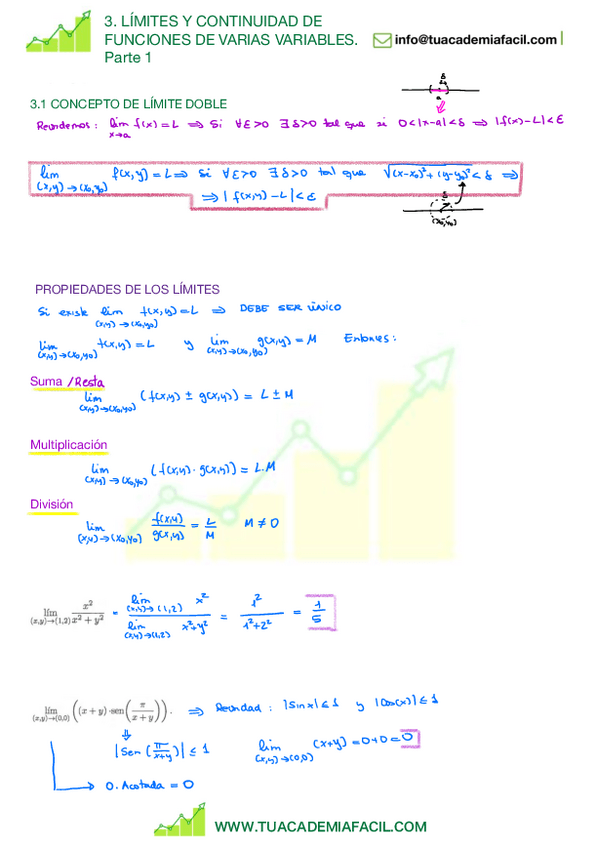 3. LÍMITES Y CONTINUIDAD DE
FUNCIONES DE VARIAS VARIABLES.
Parte 1
info@tuacademiafacil.com
3.1 CONCEPTO DE LÍMITE DOBLE
Recordemos: lim f(x) = L ⇒ Si ∀ε>0 ∃δ>0 tal que si 0<|x-a|<δ ⇒ |f(x)-L|<ε
x→a
δ
a
lim f(x,y) = L ⇒ si ∀ε>0 ∃δ>0 tal que √(x-x₀)²+(y-y₀)² < δ ⇒
(x,y)→(x₀,y₀)
⇒ |f(x,y)-L|<ε
δ
(x₀,y₀)
PROPIEDADES DE LOS LÍMITES
Si existe lim f(x,y) = L ⇒ DEBE SER ÚNICO
(x,y)→(x₀,y₀)
lim f(x,y) = L y lim g(x,y) = M Entonces:
(x,y)→(x₀,y₀) (x,y)→(x₀,y₀)
Suma /Resta
lim (f(x,y) ± g(x,y)) = L ± M
(x,y)→(x₀,y₀)
Multiplicación
lim (f(x,y) · g(x,y)) = L.M
(x,y)→(x₀,y₀)
División
lim f(x,y)/g(x,y) = L/M M ≠ 0
(x,y)→(x₀,y₀)
lím (x,y)→(1,2) x²/(x² + y²) = lim (x,y)→(1,2) x² / lim (x,y)→(1,2) x²+y² = 1²/(1²+2²) = 1/5
lím (x,y)→(0,0) ((x + y) · sen(π/(x + y))). ⇒ Recordad: |sin x| ≤ 1 y |cos(x)| ≤ 1
⇓
|Sen(π/(x+y))| ≤ 1 lim (x+y) = 0+0 = 0
(x,y)→(0,0)
→ 0. Acotada = 0
WWW.TUACADEMIAFACIL.COM